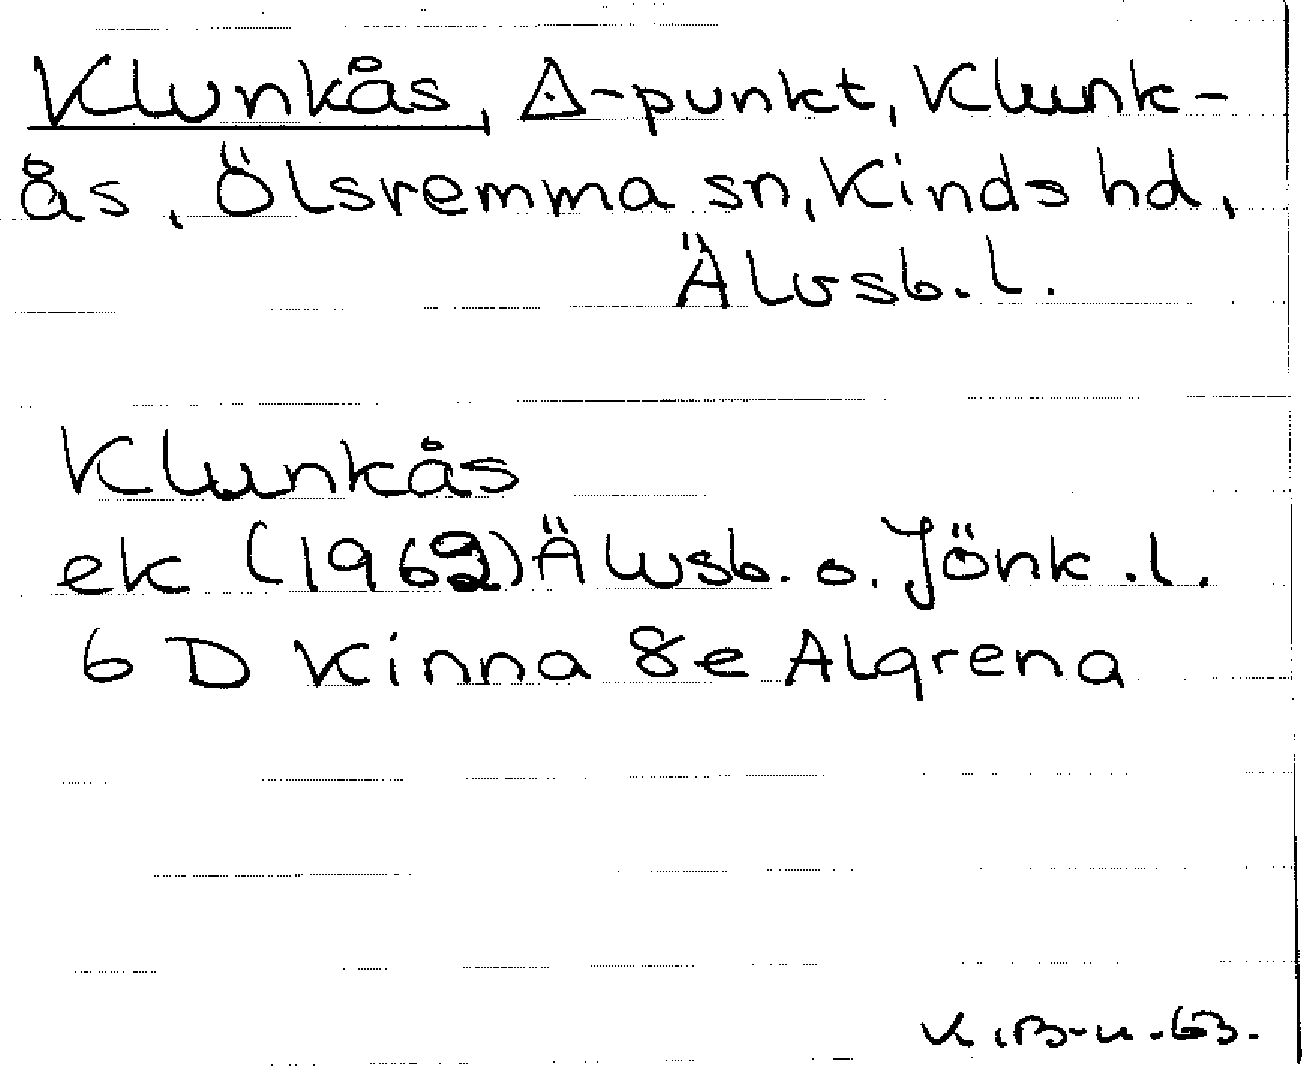 Klunkås, △-punkt, Klunk-
ås, Ölsremma sn, Kinds hd,
Älvsb. l.
Klunkås
ek (1962) Älvsb. o. Jönk. l.
6 D Kinna 8e Algrena
K. B-n. 63.